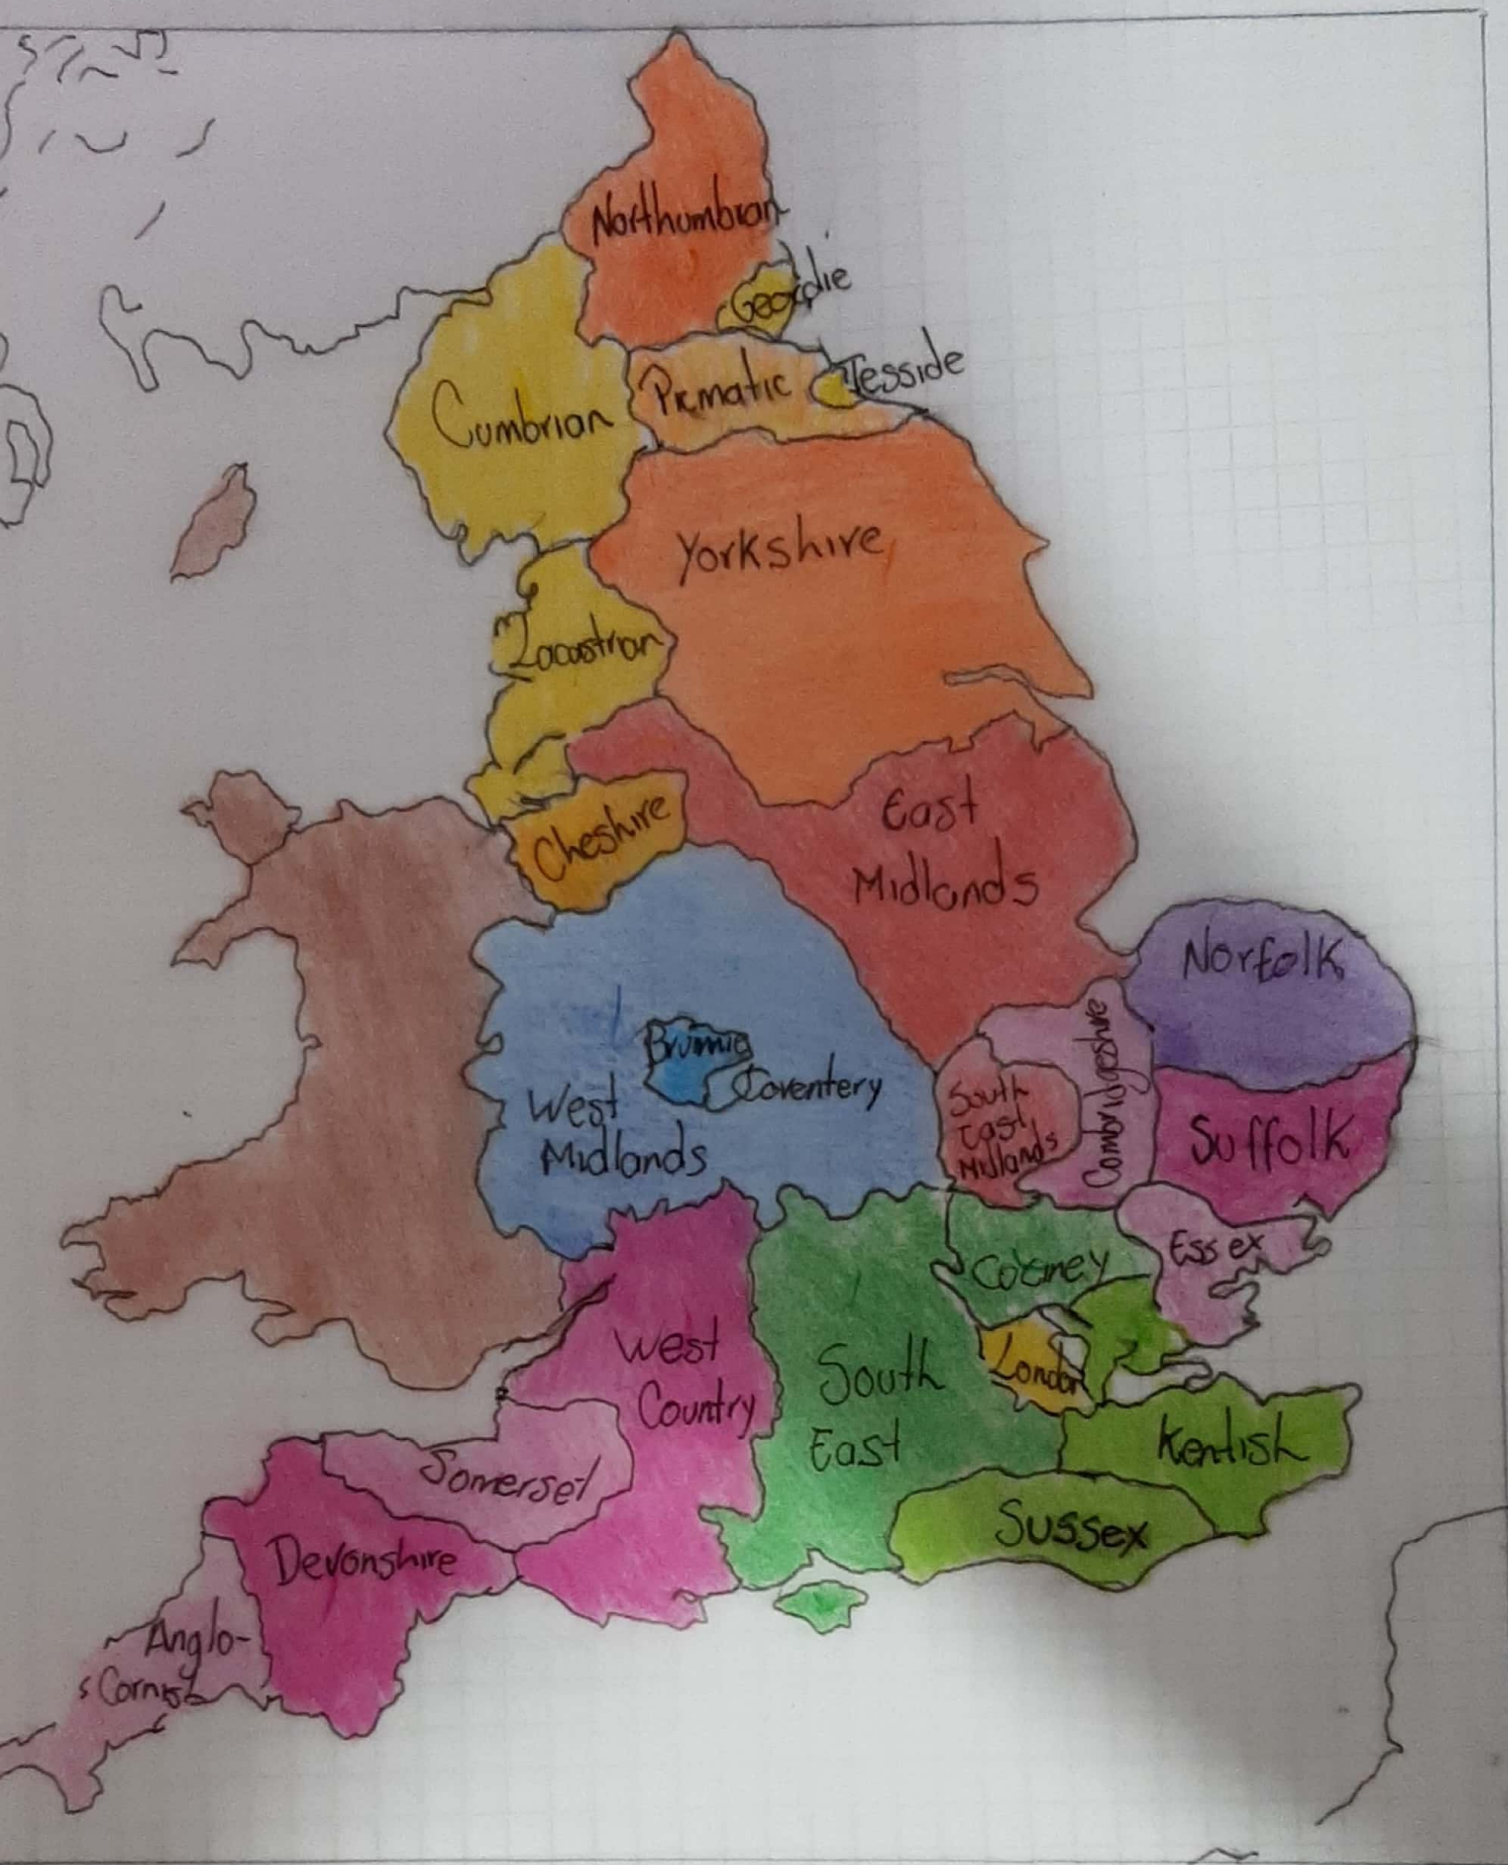 Northumbrian
Geordie
Tesside
Picmatic
Cumbrian
Yorkshire
Lacastrian
East
Midlands
Cheshire
Norfolk
Brumie
Coventery
West
Midlands
South
East
Midlands
Cambridgeshire
Suffolk
Essex
Cocney
West
Country
South
East
London
Kentish
Somerset
Sussex
Devonshire
Anglo-
Cornish